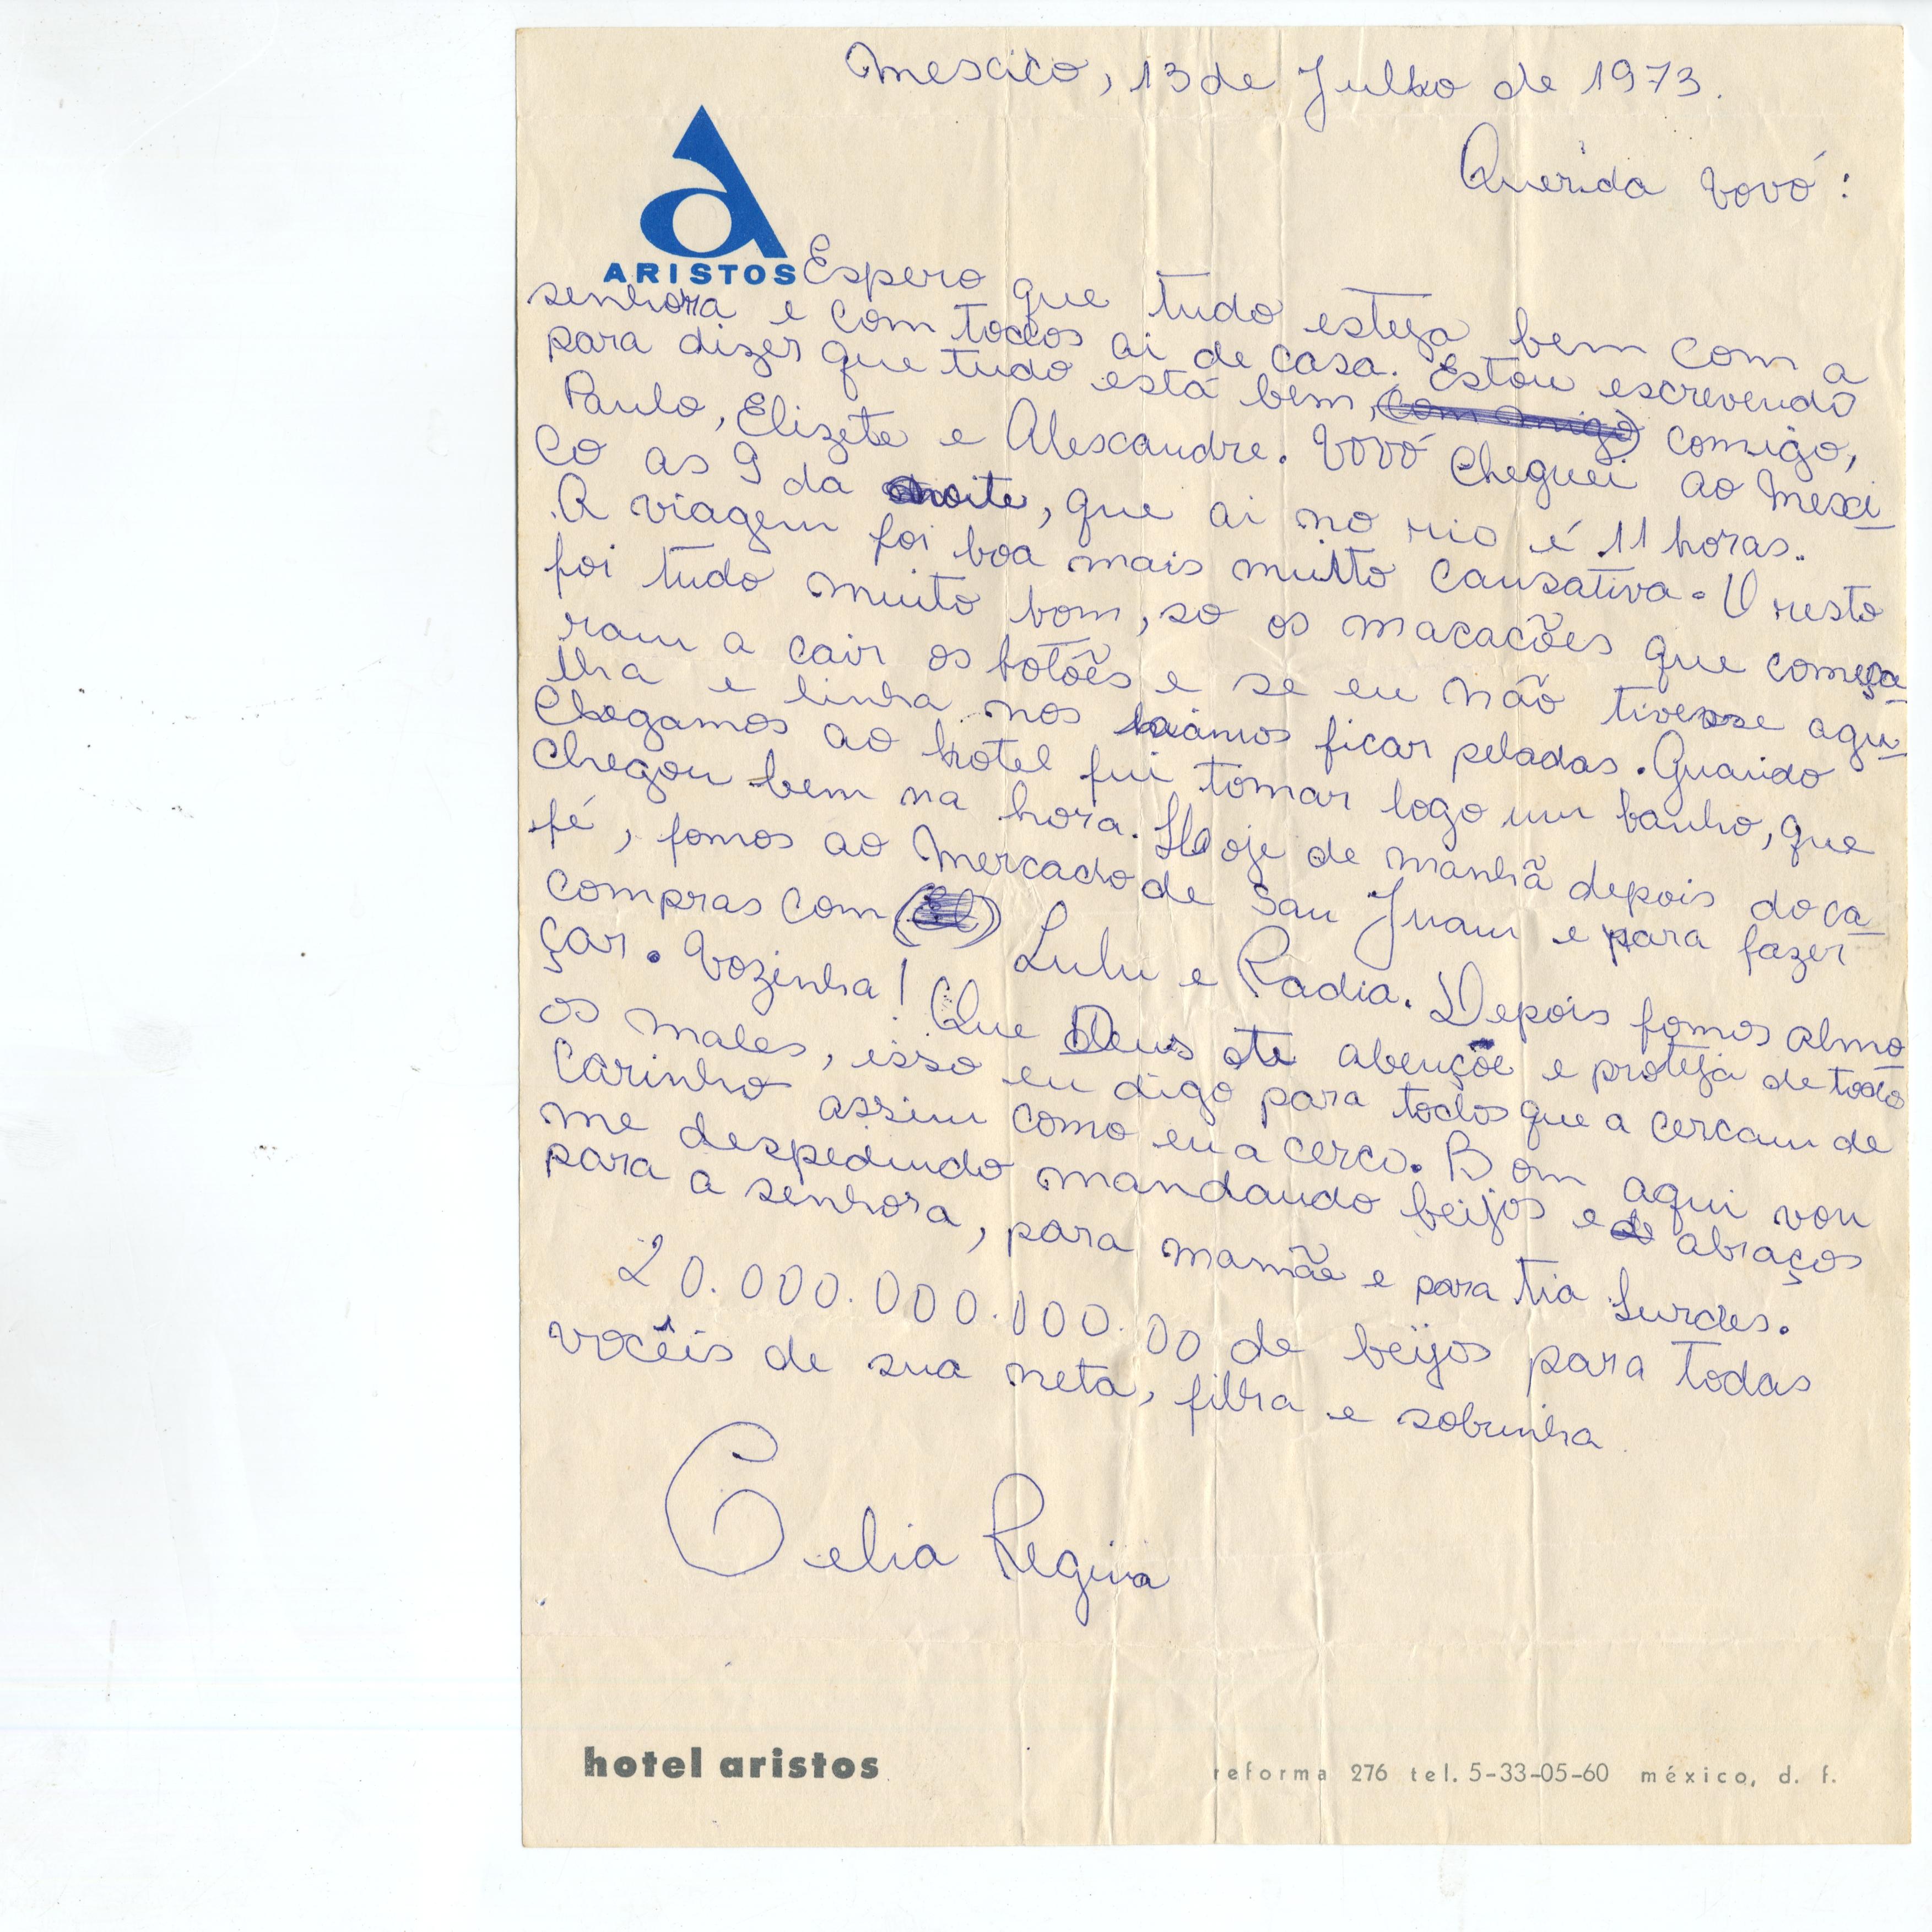 Mexico, 13 de Julho de 1973.
Querida Vovó:
ARISTOS
Espero que tudo esteja bem com a
senhora e com todos ai de casa. Estou escrevendo
para dizer que tudo está bem, com migo comigo,
Paulo, Elizete e Alexandre. Vovó cheguei ao Mexi-
co as 9 da noite, que ai no rio é 11 horas.
A viagem foi boa mais muito cansativa. O resto
foi tudo muito bom, so os macacões que começa-
ram a cair os botões e se eu não tivesse agu-
lha e linha nos iamos ficar peladas. Quando
chegamos ao hotel fui tomar logo um banho, que
chegou bem na hora. Hoje de manhã depois do ca-
fé, fomos ao Mercado de San Juan e para fazer
compras com Lulu e Radia. Depois fomos almo-
çar. Vozinha! Que Deus te abençõe e proteja de todos
os males, isso eu digo para todos que a cercam de
carinho assim como eu a cerco. Bom aqui vou
me despedindo mandando beijos e abraços
para a senhora, para mamãe e para tia Lurdes.
20.000.000.000.00 de beijos para todas
vocêis de sua neta, filha e sobrinha
Celia Regina
hotel aristos
reforma 276 tel. 5-33-05-60 méxico, d. f.